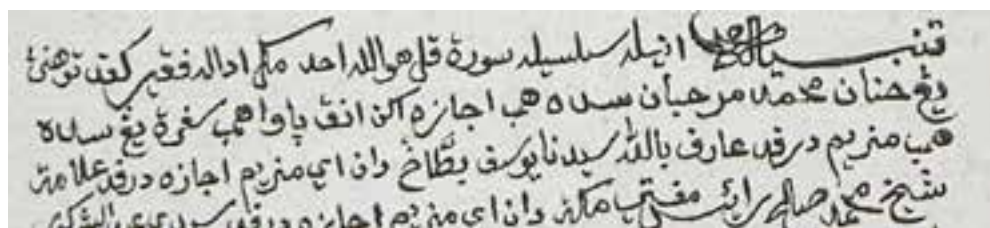 تنبيه انيله سلسيله سورة قل هو الله احد مک اداله فقير کفد توهنڽ
يغ حنان محمد مرحبان سده همب اجازه اکن انق باوا همب سفرة يغ سده
همب منريم درفد عارف بالله سيدنا يوسف بطّاح دان اي منريم اجازه درفد علامة
شيخ محمد صالح رائيس مفتي مكة دان اي منريم اجازه درفد